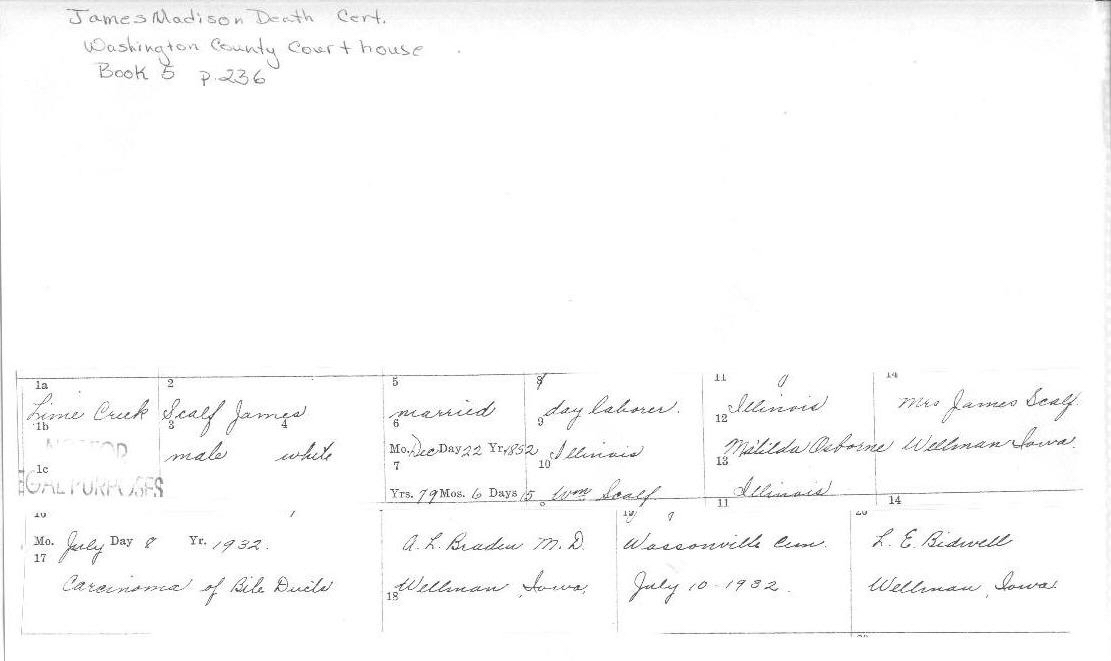 James Madison Death Cert.
Washington County Court house
Book 5 p.236
1a 2 5 8 11 14
Lime Creek Scalf James married day laborer. Illinois Mrs James Scalf
1b 3 4 6 9 12
male white Mo. Dec Day 22 Yr. 1852 Illinois Matilda Osborne Wellman Iowa
7 10 13
1c
LEGAL PURPOSES Yrs. 79 Mos. 6 Days 15 Wm Scalf Illinois
11 14
16 19 20
Mo. July Day 8 Yr. 1932. A. L. Braden M.D. Wassonville Cem. L. E. Bidwell
17
Carcinoma of Bile Ducts Wellman, Iowa. July 10-1932. Wellman, Iowa
18